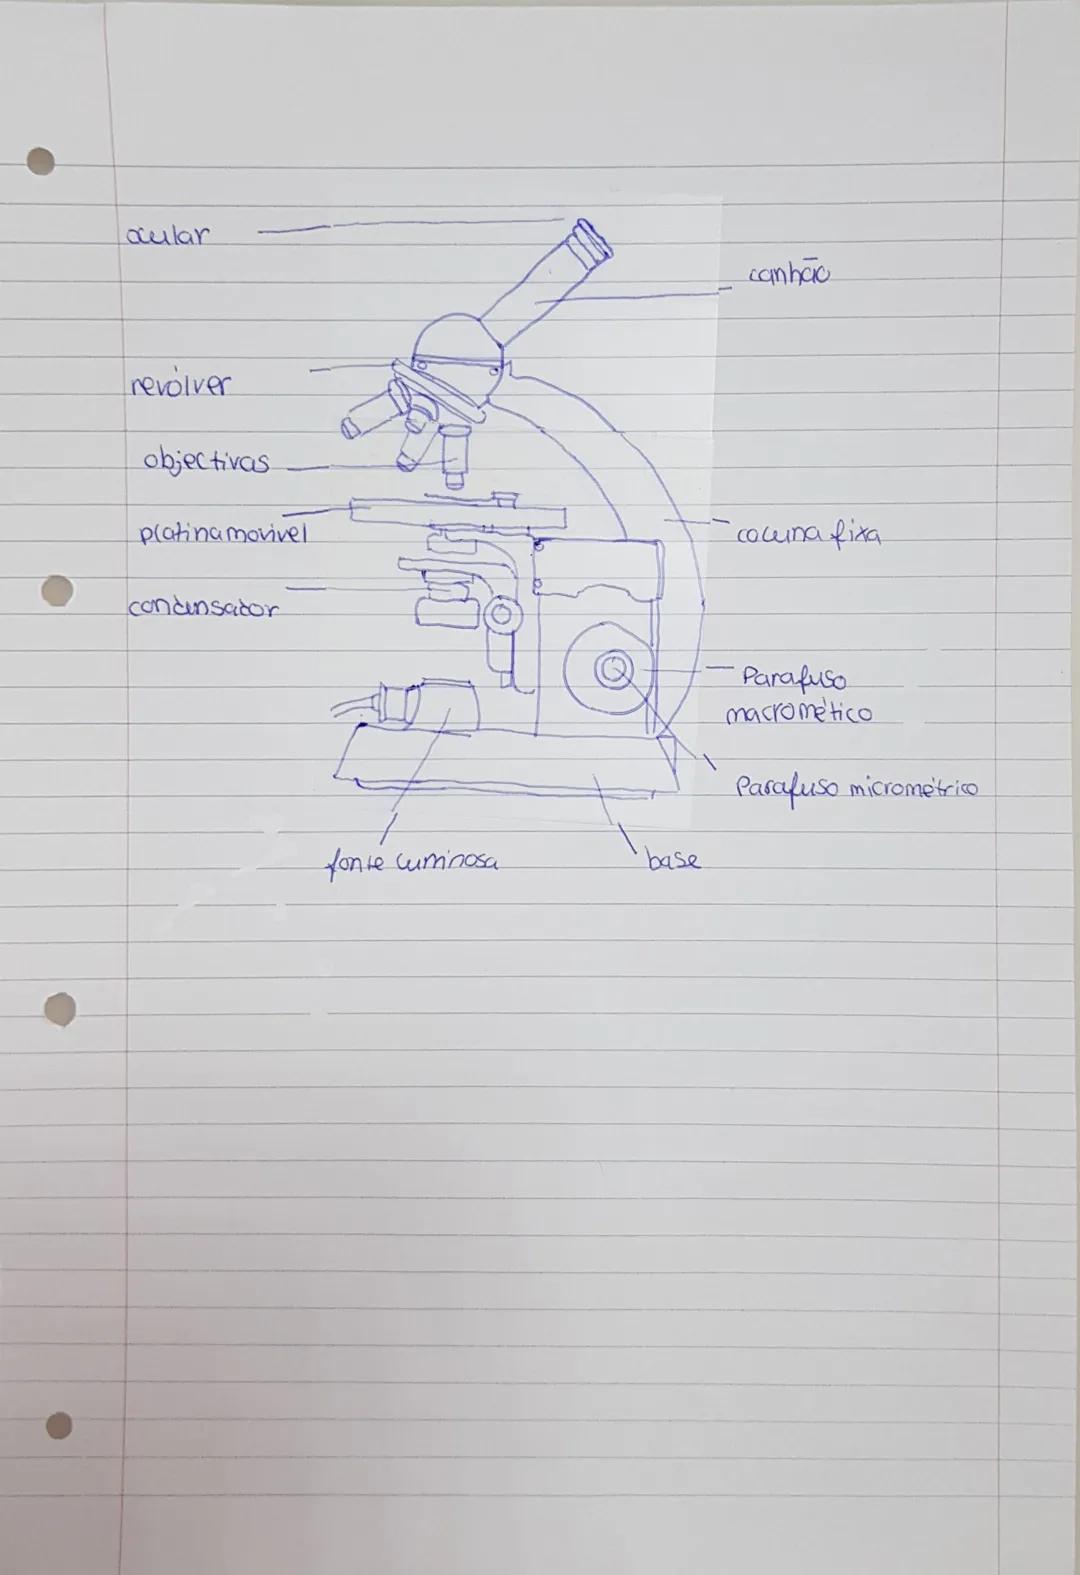 ocular
canhão
revólver
objectivas
platina movivel
coluna fixa
condensador
Parafuso
macrométrico
Parafuso micrométrico
fonte luminosa
base